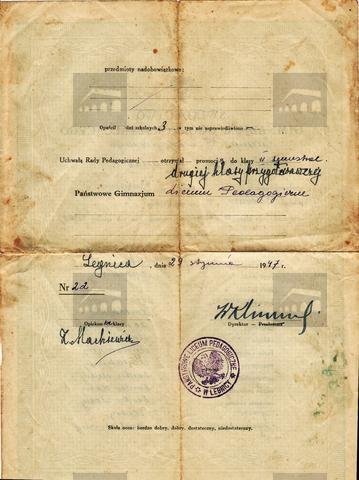 przedmioty nadobowiązkowe:
Opuścił dni szkolnych 3 w tym nie usprawiedliwiono —
Uchwałą Rady Pedagogicznej otrzymał promocję do klasy II semestr
drugiej klasy przygotowawczej
Państwowe Gimnazjum Liceum Pedagogiczne
Legnica, dnia 29 stycznia 1947 r.
Nr 22
Opiekun klasy
Dyrektor
PAŃSTWOWE LICEUM PEDAGOGICZNE
W LEGNICY
Skala ocen: bardzo dobry, dobry, dostateczny, niedostateczny.